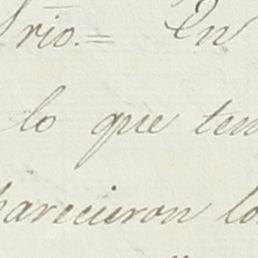 Srio.= En
lo que ten
parecieron lo